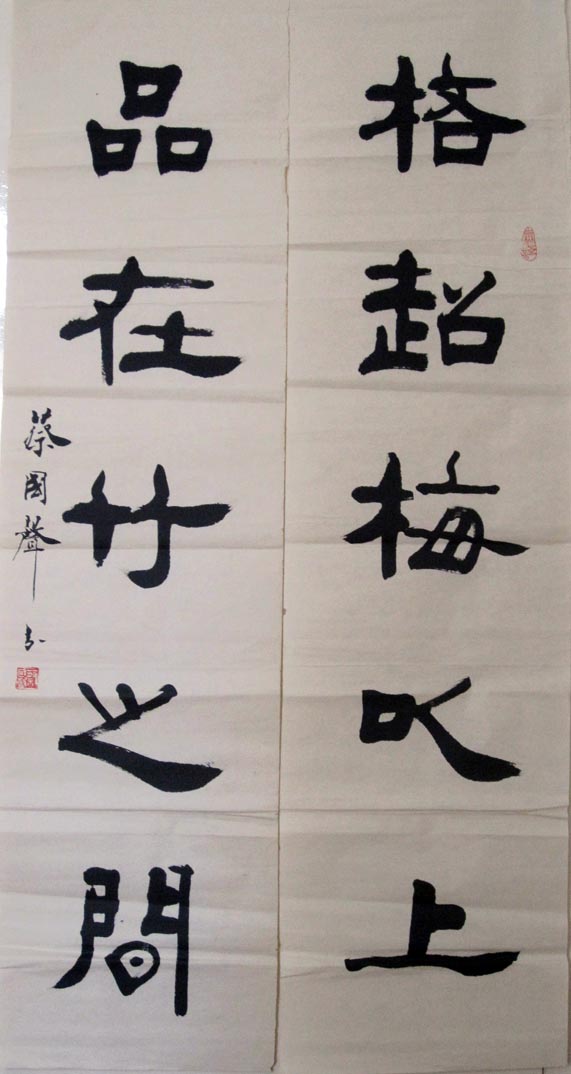 格超梅以上
品在竹之間
蔡國聲